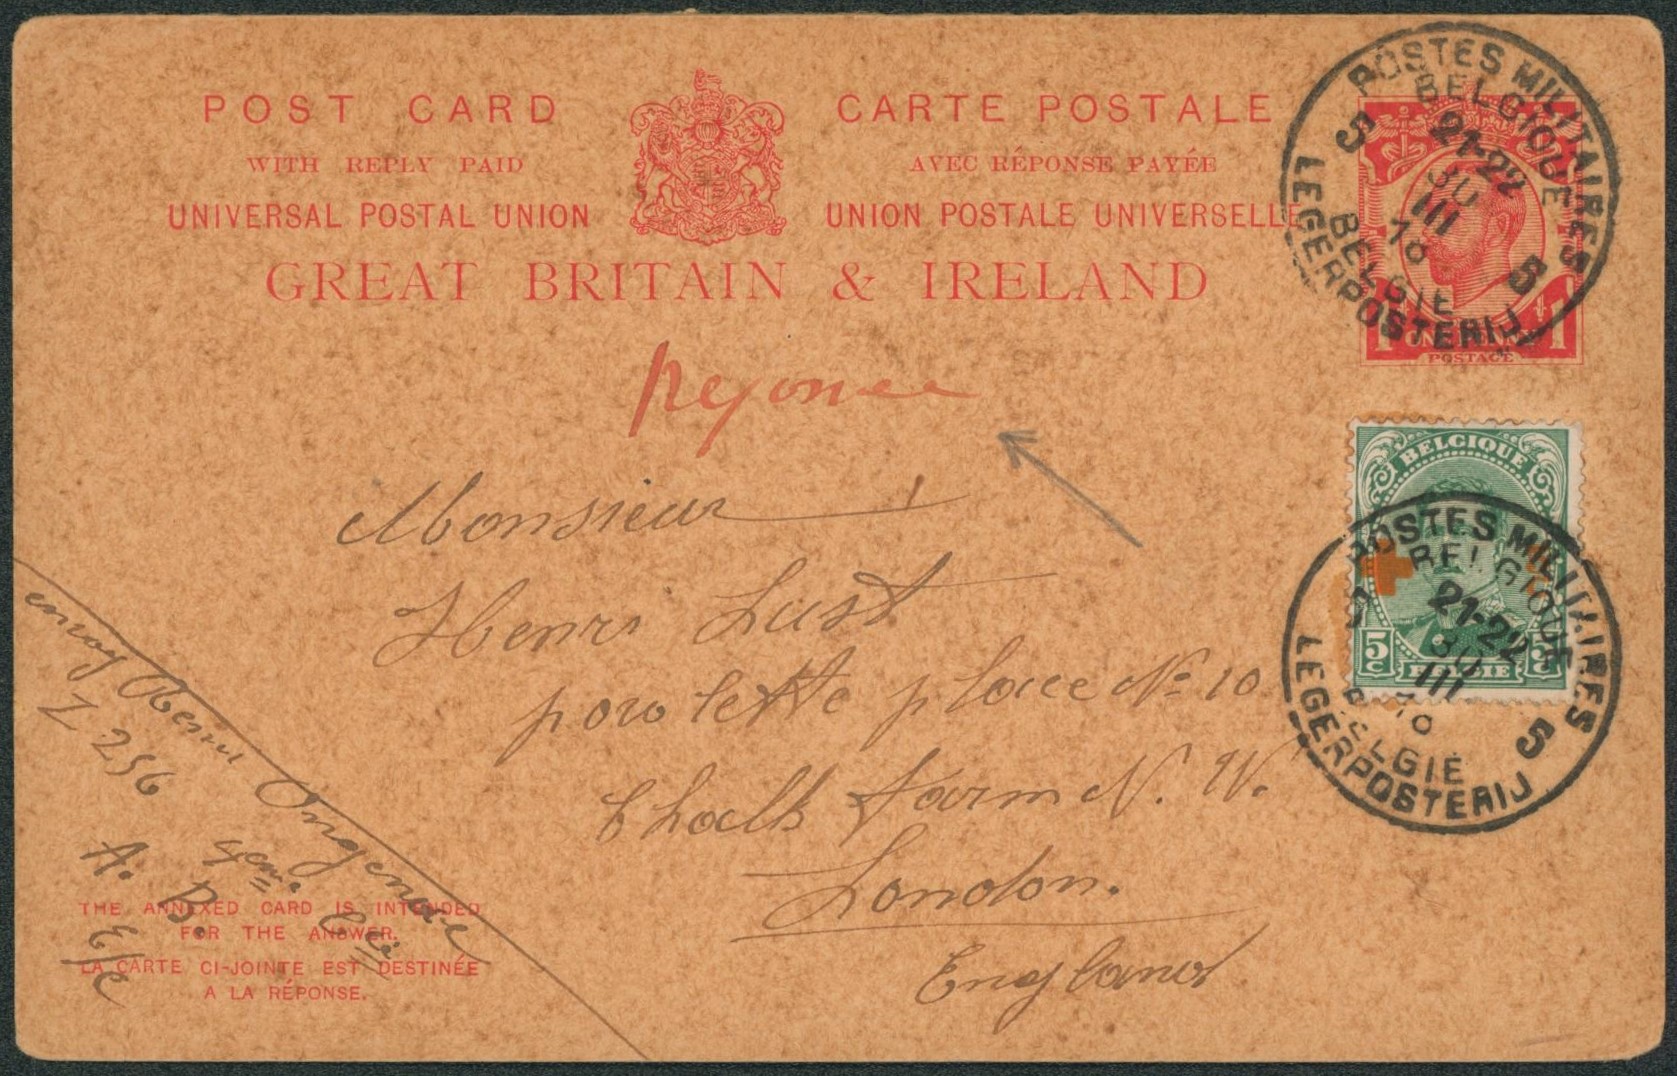 POST CARD
WITH REPLY PAID
UNIVERSAL POSTAL UNION
CARTE POSTALE
AVEC RÉPONSE PAYÉE
UNION POSTALE UNIVERSELLE
GREAT BRITAIN & IRELAND
POSTES MILITAIRES
BELGIQUE
5 21-22 5
30
III
18
BELGIE
LEGERPOSTERIJ
1 ONE PENNY 1
POSTAGE
Monsieur
Henri Lust
N° 10
Chalk Farm N. W.
London.
England
BELGIQUE
5c BELGIE 5c
POSTES MILITAIRES
BELGIQUE
5 21-22 5
30
III
18
BELGIE
LEGERPOSTERIJ
envoy Henri
Z 256
4eme Cie
A. B.
THE ANNEXED CARD IS INTENDED
FOR THE ANSWER.
LA CARTE CI-JOINTE EST DESTINÉE
A LA RÉPONSE.